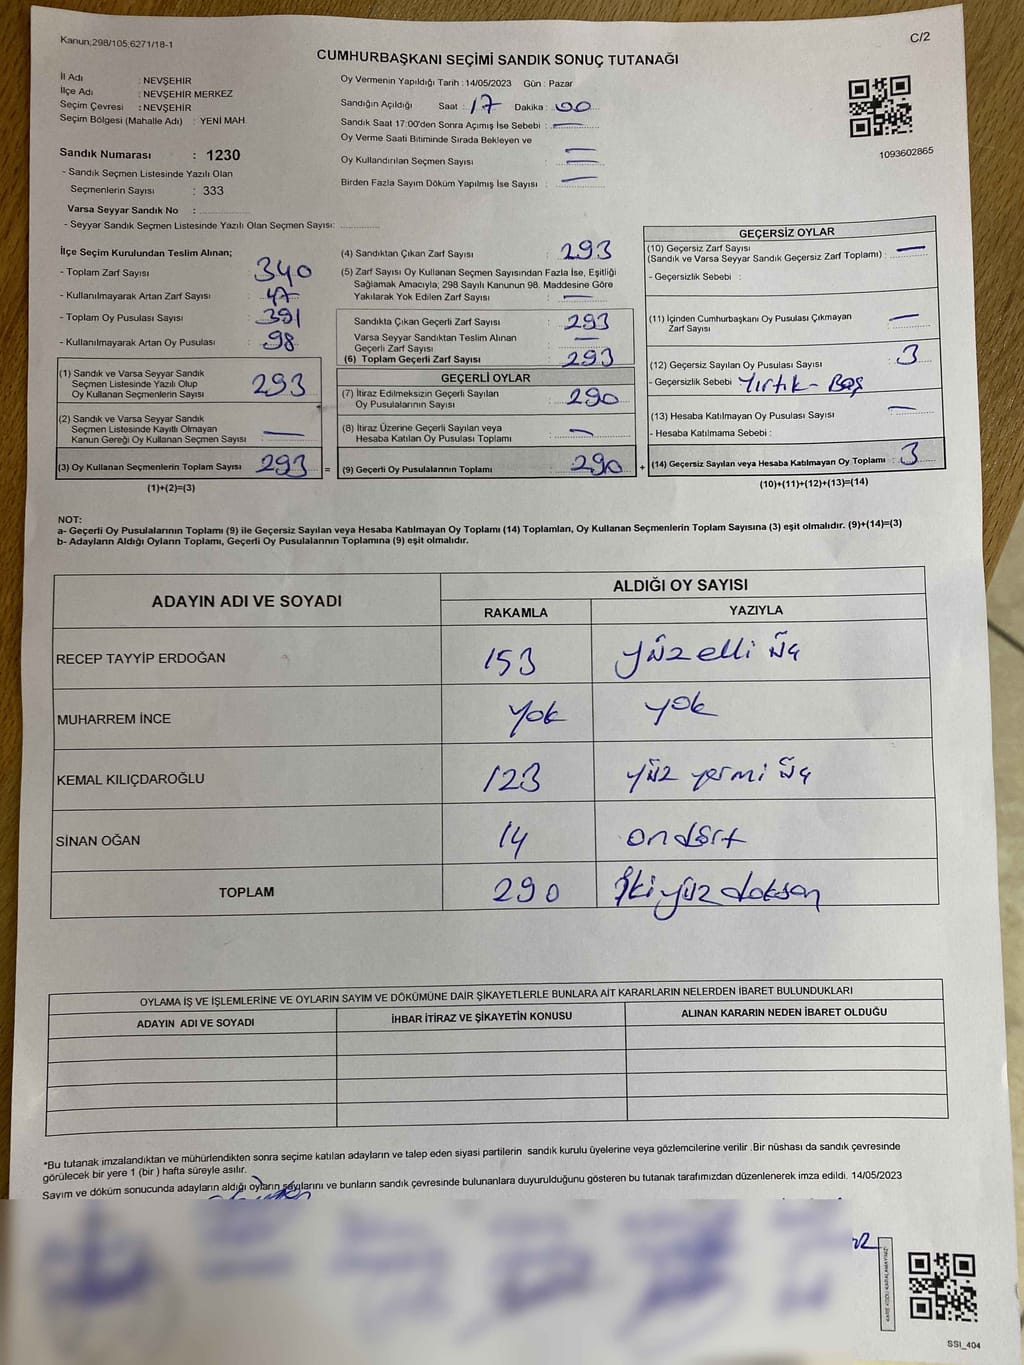 Kanun;298/105;6271/18-1
C/2
CUMHURBAŞKANI SEÇİMİ SANDIK SONUÇ TUTANAĞI
İl Adı : NEVŞEHİR
İlçe Adı : NEVŞEHİR MERKEZ
Seçim Çevresi : NEVŞEHİR
Seçim Bölgesi (Mahalle Adı) : YENİ MAH.
Sandık Numarası : 1230
- Sandık Seçmen Listesinde Yazılı Olan
Seçmenlerin Sayısı : 333
Varsa Seyyar Sandık No :
- Seyyar Sandık Seçmen Listesinde Yazılı Olan Seçmen Sayısı:
Oy Vermenin Yapıldığı Tarih : 14/05/2023 Gün : Pazar
Sandığın Açıldığı Saat : 17 Dakika : 00
Sandık Saat 17:00'den Sonra Açımış İse Sebebi : —
Oy Verme Saati Bitiminde Sırada Bekleyen ve : —
Oy Kullandırılan Seçmen Sayısı : —
Birden Fazla Sayım Döküm Yapılmış İse Sayısı : —
1093602865
İlçe Seçim Kurulundan Teslim Alınan;
- Toplam Zarf Sayısı : 340
- Kullanılmayarak Artan Zarf Sayısı : 47
- Toplam Oy Pusulası Sayısı : 391
- Kullanılmayarak Artan Oy Pusulası : 98
(1) Sandık ve Varsa Seyyar Sandık
Seçmen Listesinde Yazılı Olup
Oy Kullanan Seçmenlerin Sayısı : 293
(2) Sandık ve Varsa Seyyar Sandık
Seçmen Listesinde Kayıtlı Olmayan
Kanun Gereği Oy Kullanan Seçmen Sayısı : —
(3) Oy Kullanan Seçmenlerin Toplam Sayısı : 293 =
(1)+(2)=(3)
(4) Sandıktan Çıkan Zarf Sayısı : 293
(5) Zarf Sayısı Oy Kullanan Seçmen Sayısından Fazla İse, Eşitliği
Sağlamak Amacıyla, 298 Sayılı Kanunun 98. Maddesine Göre
Yakılarak Yok Edilen Zarf Sayısı : —
Sandıkta Çıkan Geçerli Zarf Sayısı : 293
Varsa Seyyar Sandıktan Teslim Alınan
Geçerli Zarf Sayısı : —
(6) Toplam Geçerli Zarf Sayısı : 293
GEÇERLİ OYLAR
(7) İtiraz Edilmeksizin Geçerli Sayılan
Oy Pusulalarının Sayısı : 290
(8) İtiraz Üzerine Geçerli Sayılan veya
Hesaba Katılan Oy Pusulası Toplamı : —
(9) Geçerli Oy Pusulalarının Toplamı : 290 +
GEÇERSİZ OYLAR
(10) Geçersiz Zarf Sayısı
(Sandık ve Varsa Seyyar Sandık Geçersiz Zarf Toplamı) : —
- Geçersizlik Sebebi :
(11) İçinden Cumhurbaşkanı Oy Pusulası Çıkmayan
Zarf Sayısı : —
(12) Geçersiz Sayılan Oy Pusulası Sayısı : 3
- Geçersizlik Sebebi : Yırtık - Boş
(13) Hesaba Katılmayan Oy Pusulası Sayısı : —
- Hesaba Katılmama Sebebi :
(14) Geçersiz Sayılan veya Hesaba Katılmayan Oy Toplamı : 3
(10)+(11)+(12)+(13)=(14)
NOT:
a- Geçerli Oy Pusulalarının Toplamı (9) ile Geçersiz Sayılan veya Hesaba Katılmayan Oy Toplamı (14) Toplamları, Oy Kullanan Seçmenlerin Toplam Sayısına (3) eşit olmalıdır. (9)+(14)=(3)
b- Adayların Aldığı Oyların Toplamı, Geçerli Oy Pusulalarının Toplamına (9) eşit olmalıdır.
ADAYIN ADI VE SOYADI
ALDIĞI OY SAYISI
RAKAMLA YAZIYLA
RECEP TAYYİP ERDOĞAN 153 yüz elli üç
MUHARREM İNCE Yok yok
KEMAL KILIÇDAROĞLU 123 yüz yermi üç
SİNAN OĞAN 14 ondört
TOPLAM 290 İkiyüz doksan
OYLAMA İŞ VE İŞLEMLERİNE VE OYLARIN SAYIM VE DÖKÜMÜNE DAİR ŞİKAYETLERLE BUNLARA AİT KARARLARIN NELERDEN İBARET BULUNDUKLARI
ADAYIN ADI VE SOYADI İHBAR İTİRAZ VE ŞİKAYETİN KONUSU ALINAN KARARIN NEDEN İBARET OLDUĞU
*Bu tutanak imzalandıktan ve mühürlendikten sonra seçime katılan adayların ve talep eden siyasi partilerin sandık kurulu üyelerine veya gözlemcilerine verilir .Bir nüshası da sandık çevresinde
görülecek bir yere 1 (bir ) hafta süreyle asılır.
Sayım ve döküm sonucunda adayların aldığı oyların sayılarını ve bunların sandık çevresinde bulunanlara duyurulduğunu gösteren bu tutanak tarafımızdan düzenlenerek imza edildi. 14/05/2023
KARE KODU KARALAMAYINIZ!
SSI_404